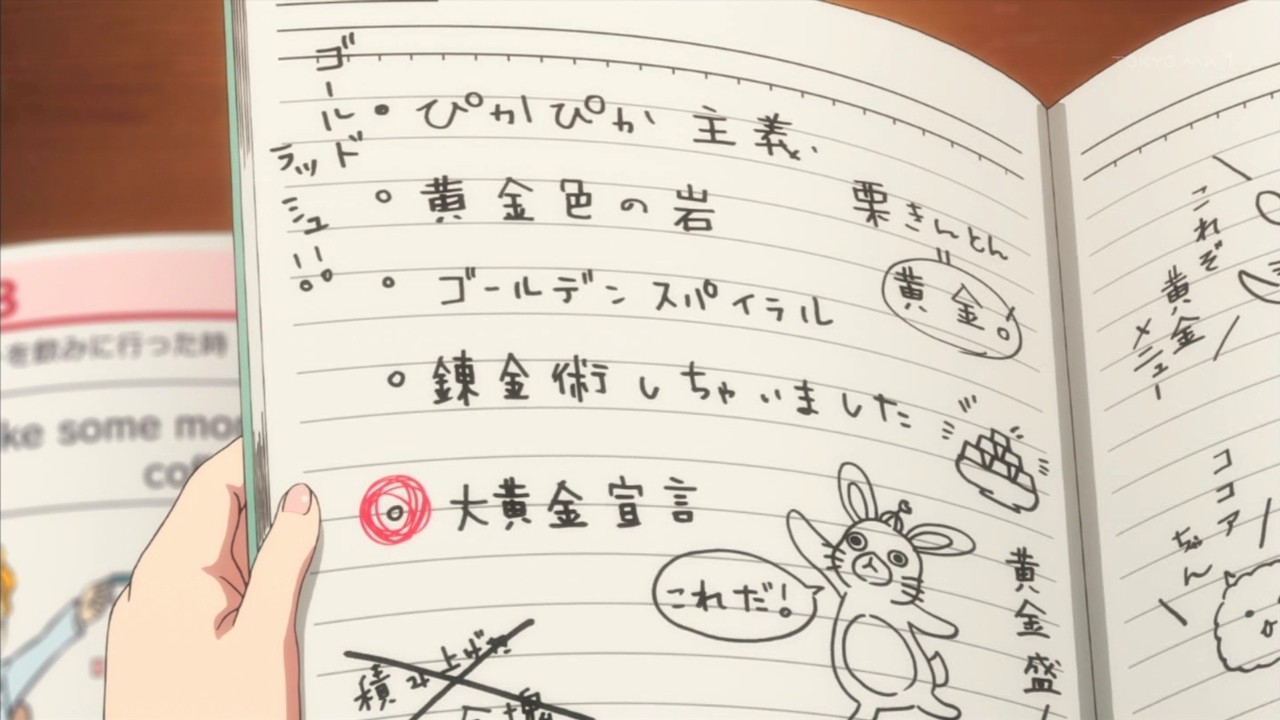 ゴールドラッシュ!!
・ぴかぴか主義
・黄金色の岩
・ゴールデンスパイラル
・錬金術しちゃいました
・大黄金宣言
栗きんとん
=
黄金。
これだ!
積み上げた
金塊
黄金盛
これぞ
黄金
メニュー
ココア
ちゃん
3
を飲みに行った時
ke some mo
co
TOKYO MX 1